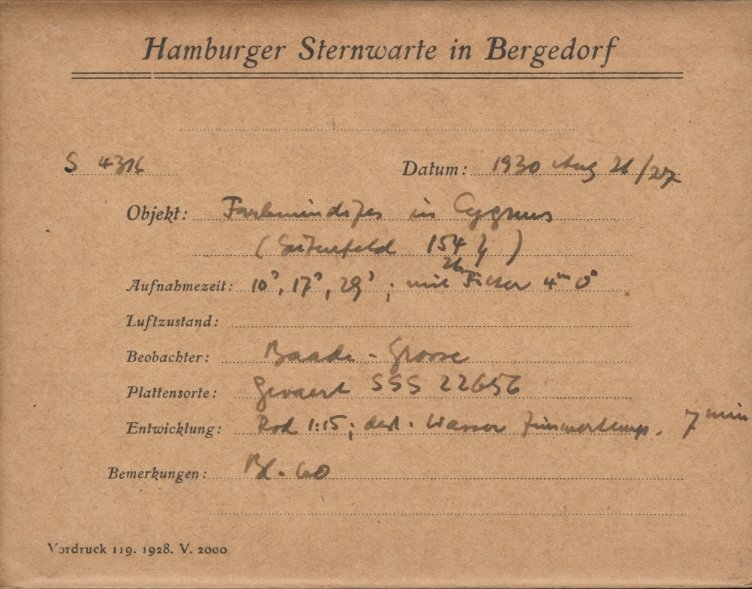 Hamburger Sternwarte in Bergedorf
S 4316 Datum: 1930 Aug 26/27
Objekt: Farbenindizes in Cygnus
( 154 )
Aufnahmezeit: 10s, 17s, 29s; mit Filter 4m 0s
Luftzustand:
Beobachter: Baade - Grosse
Plattensorte: Gevaert SSS 22656
Entwicklung: Rod 1:15; dest. Wasser Zimmertemp. 7 min
Bemerkungen: Bl. 60
Vordruck 119. 1928. V. 2000